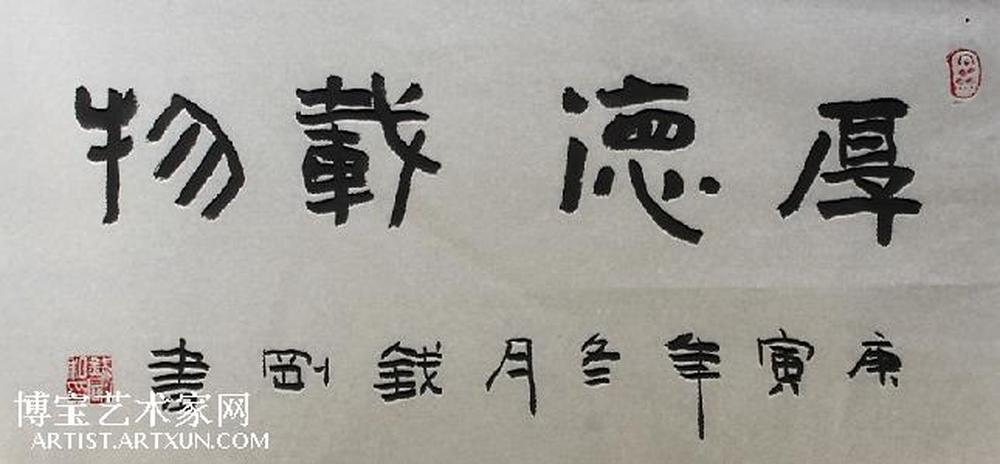 厚德載物
庚寅年冬月錢剛書
博宝艺术家网
ARTIST.ARTXUN.COM